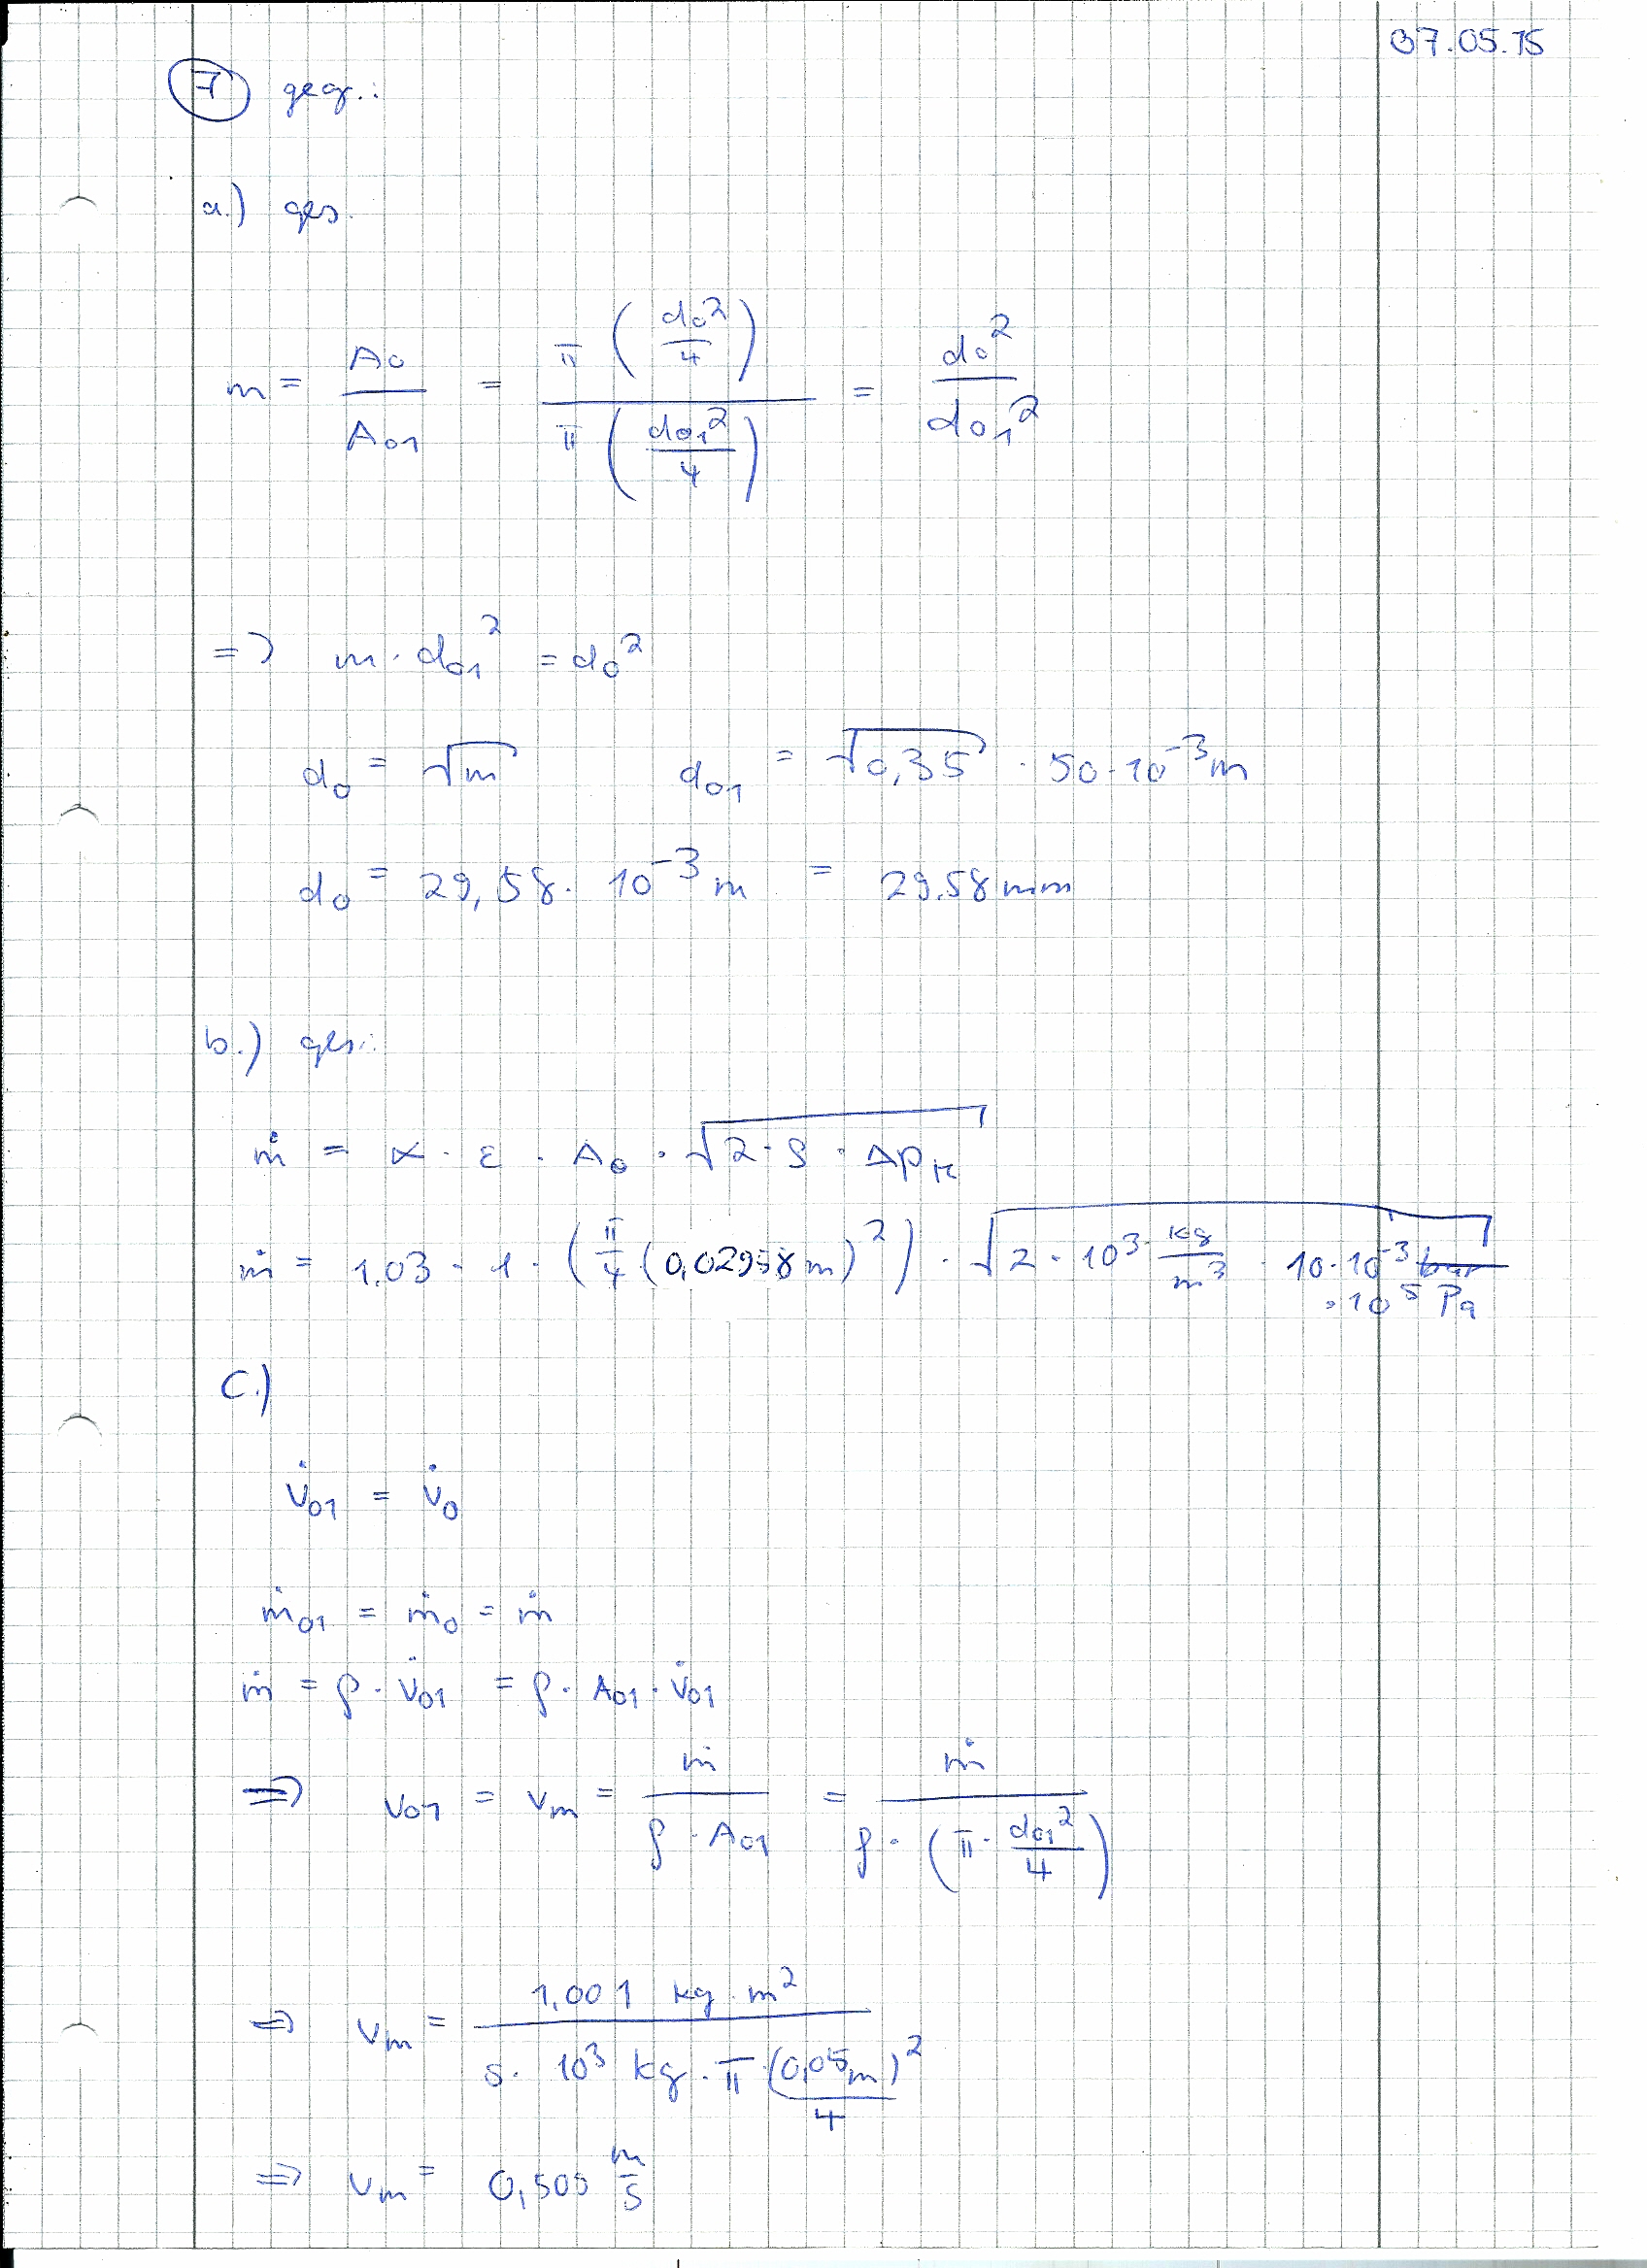 07.05.15
7 geg.:
a.) ges.
m = A0 / A01 = π (d0² / 4) / π (d01² / 4) = d0² / d01²
=> m · d01² = d0²
d0 = √m d01 = √0,35 · 50·10⁻³ m
d0 = 29,58 · 10⁻³ m = 29.58 mm
b.) ges.:
ṁ = α · ε · A0 · √(2 · ρ · Δp)
ṁ = 1.03 · 1 · (π/4 (0,02958 m)²) · √(2 · 10³ · kg/m³ · 10·10⁻³ bar
· 10⁵ Pa)
C.)
V̇01 = V̇0
ṁ01 = ṁ0 = ṁ
ṁ = ρ · V̇01 = ρ · A01 · v̇01
=> v01 = vm = ṁ / (ρ · A01) = ṁ / (ρ · (π · d01² / 4))
=> vm = 1,001 kg m² / (s · 10³ kg · π (0,05m)² / 4)
=> vm = 0,509 m/s